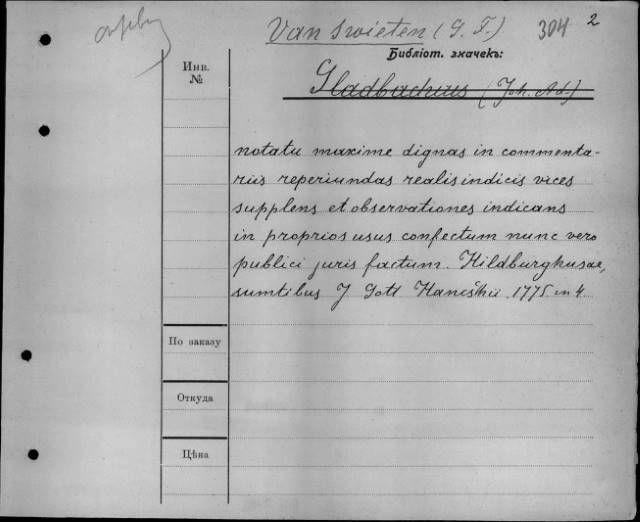 Van Swieten (G. F.) 304 2
Библiот. значекъ:
Инв.
№
Gladbachius (Joh. Ad.)
notatu maxime dignas in commenta-
riis reperiundas realis indicis vices
supplens et observationes indicans
in proprios usus confectum nunc vero
publici juris factum. Hildburghusae,
sumtibus J Gott Hanischii. 1775. in 4
По заказу
Откуда
Цѣна